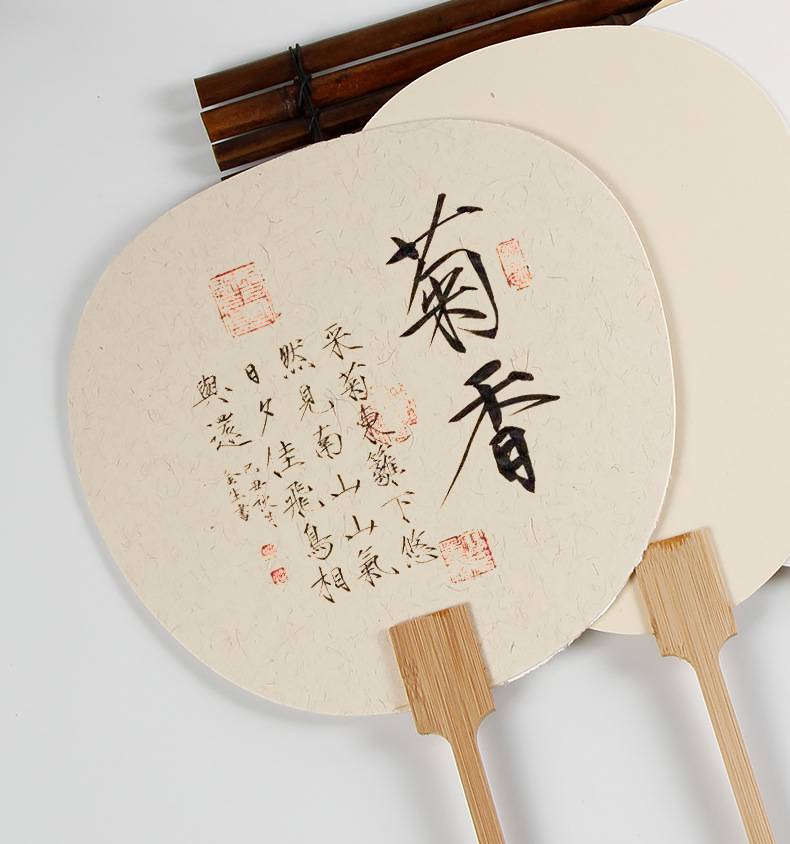 菊香
采菊東籬下悠
然見南山山氣
日夕佳飛鳥相
與還
己丑秋月
生書